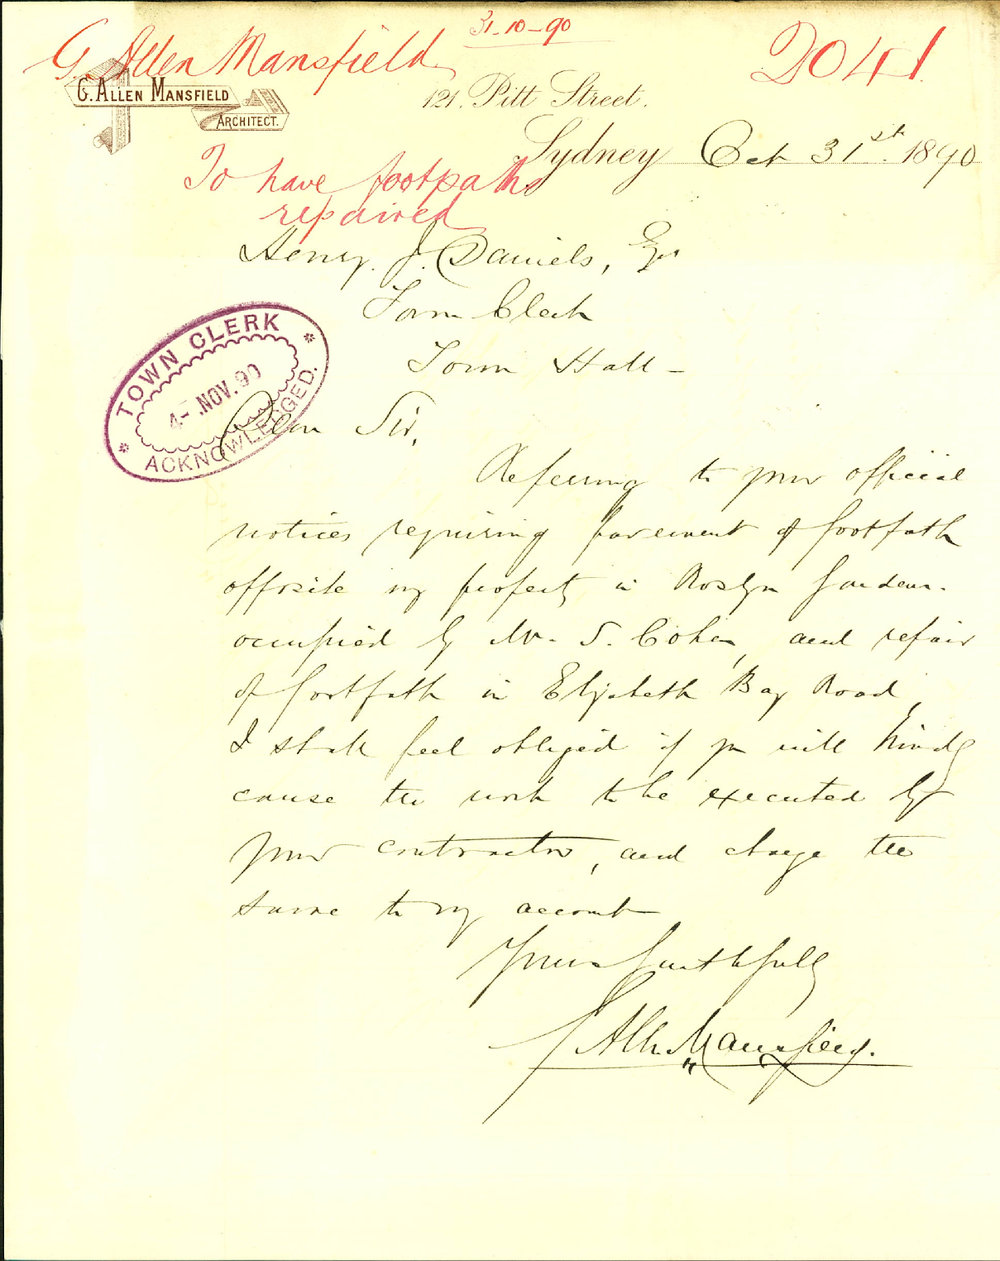 31-10-90
G. Allen Mansfield
2041
G. ALLEN MANSFIELD
ARCHITECT.
121. Pitt Street.
Sydney Oct 31st. 1890
To have footpaths
repaired
Henry. J. Daniels, Esqr
Town Clerk
Town Hall -
TOWN CLERK
4- NOV. 90
ACKNOWLEDGED.
Dear Sir,
Referring to your official
notices requiring pavement of footpath
opposite my property in Roslyn Gardens.
occupied by Mr. S. Cohen, and repair
of footpath in Elizabeth Bay Road,
I shall feel obliged if you will kindly
cause the work to be executed by
your contractor, and charge the
same to my account
Yours faithfully
G Allen Mansfield.